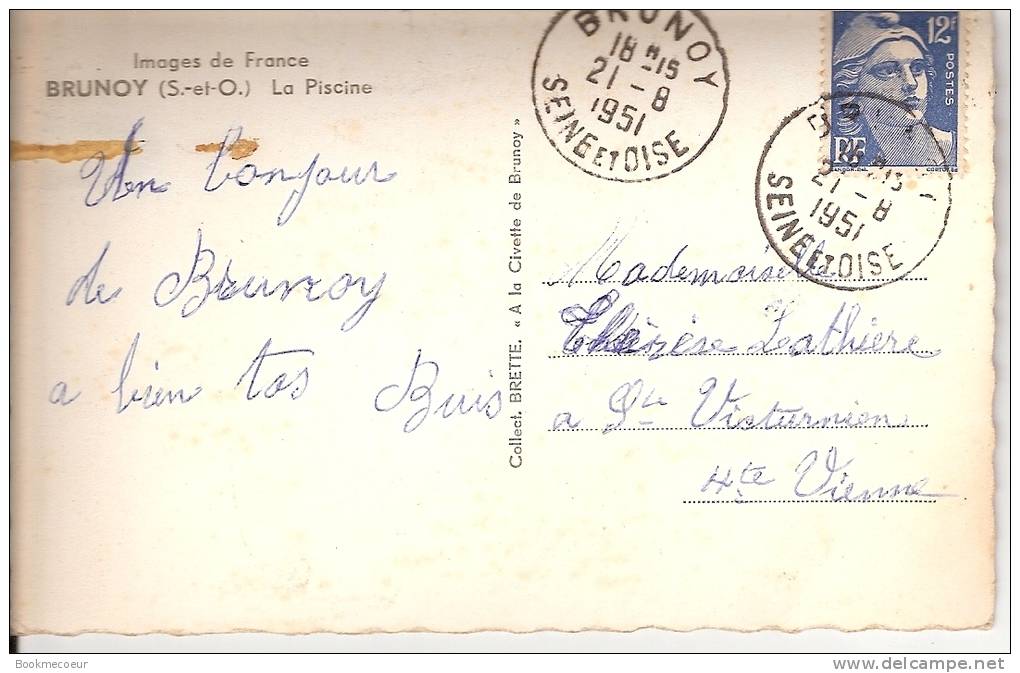 Images de France
BRUNOY (S.-et-O.) La Piscine
Un bonjour
de Brunoy
a bien tos
Buis
Collect. BRETTE. « A la Civette de Brunoy »
BRUNOY
18 H 15
21 - 8
1951
SEINE ET OISE
12F
POSTES
RF
21 - 8
1951
SEINE ET OISE
Mademoiselle
Thérèse Lathière
a Ste Victurnien
Hte Vienne
Bookmecoeur
delcampe.net